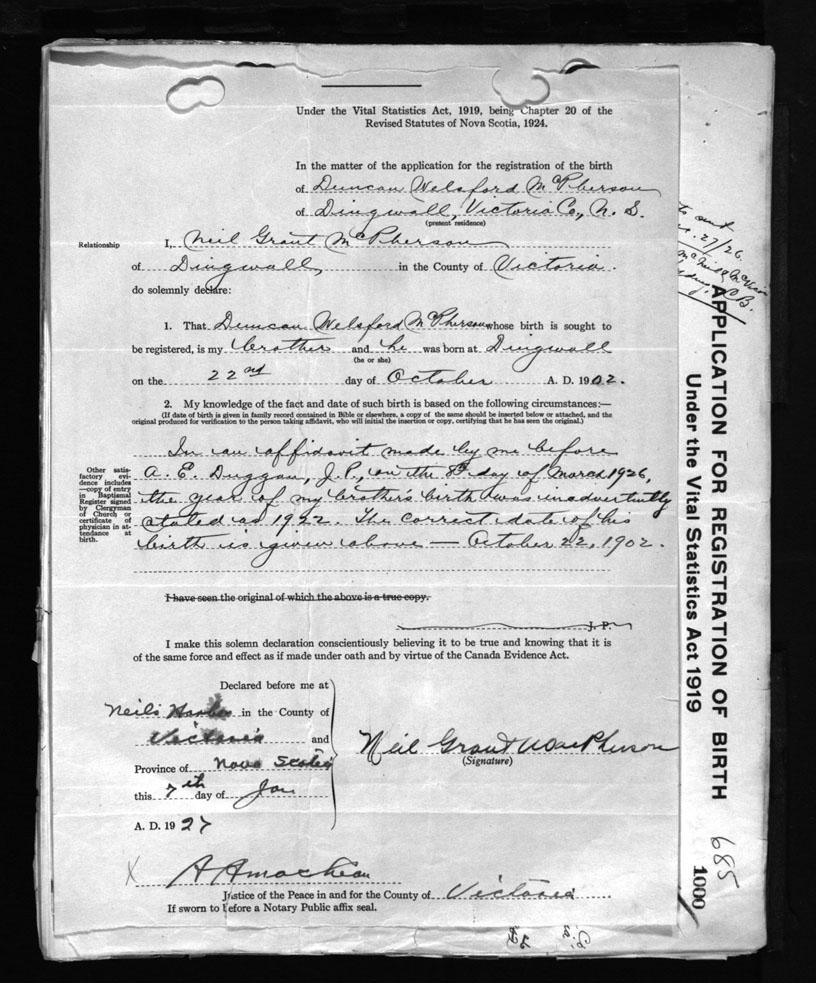 Under the Vital Statistics Act, 1919, being Chapter 20 of the
Revised Statutes of Nova Scotia, 1924.
In the matter of the application for the registration of the birth
of Duncan Welsford McPherson
of Dingwall, Victoria Co., N. S.
(present residence)
Relationship
I, Neil Grant McPherson
of Dingwall, in the County of Victoria.
do solemnly declare:
1. That Duncan Welsford McPherson whose birth is sought to
be registered, is my brother and he was born at Dingwall
(he or she)
on the 22nd day of October A. D. 1902.
2. My knowledge of the fact and date of such birth is based on the following circumstances:—
(If date of birth is given in family record contained in Bible or elsewhere, a copy of the same should be inserted below or attached, and the
original produced for verification to the person taking affidavit, who will initial the insertion or copy, certifying that he has seen the original.)
Other satis-
factory evi-
dence includes
—copy of entry
in Baptismal
Register signed
by Clergyman
of Church or
certificate of
physician in at-
tendance at
birth.
In an affidavit made by me before
A. E. Duggan, J. P., on the 8th day of March 1926,
the year of my brother's birth was inadvertently
stated as 1922. The correct date of his
birth is given above — October 22, 1902.
I have seen the original of which the above is a true copy.
J. P.
I make this solemn declaration conscientiously believing it to be true and knowing that it is
of the same force and effect as if made under oath and by virtue of the Canada Evidence Act.
Declared before me at
Neils Harbor in the County of
Victoria and
Province of Nova Scotia
this 7th day of Jan
A. D. 1927
Neil Grant MacPherson
(Signature)
X
Justice of the Peace in and for the County of Victoria
If sworn to before a Notary Public affix seal.
27/26.
C.B.
APPLICATION FOR REGISTRATION OF BIRTH
Under the Vital Statistics Act 1919
685
1000